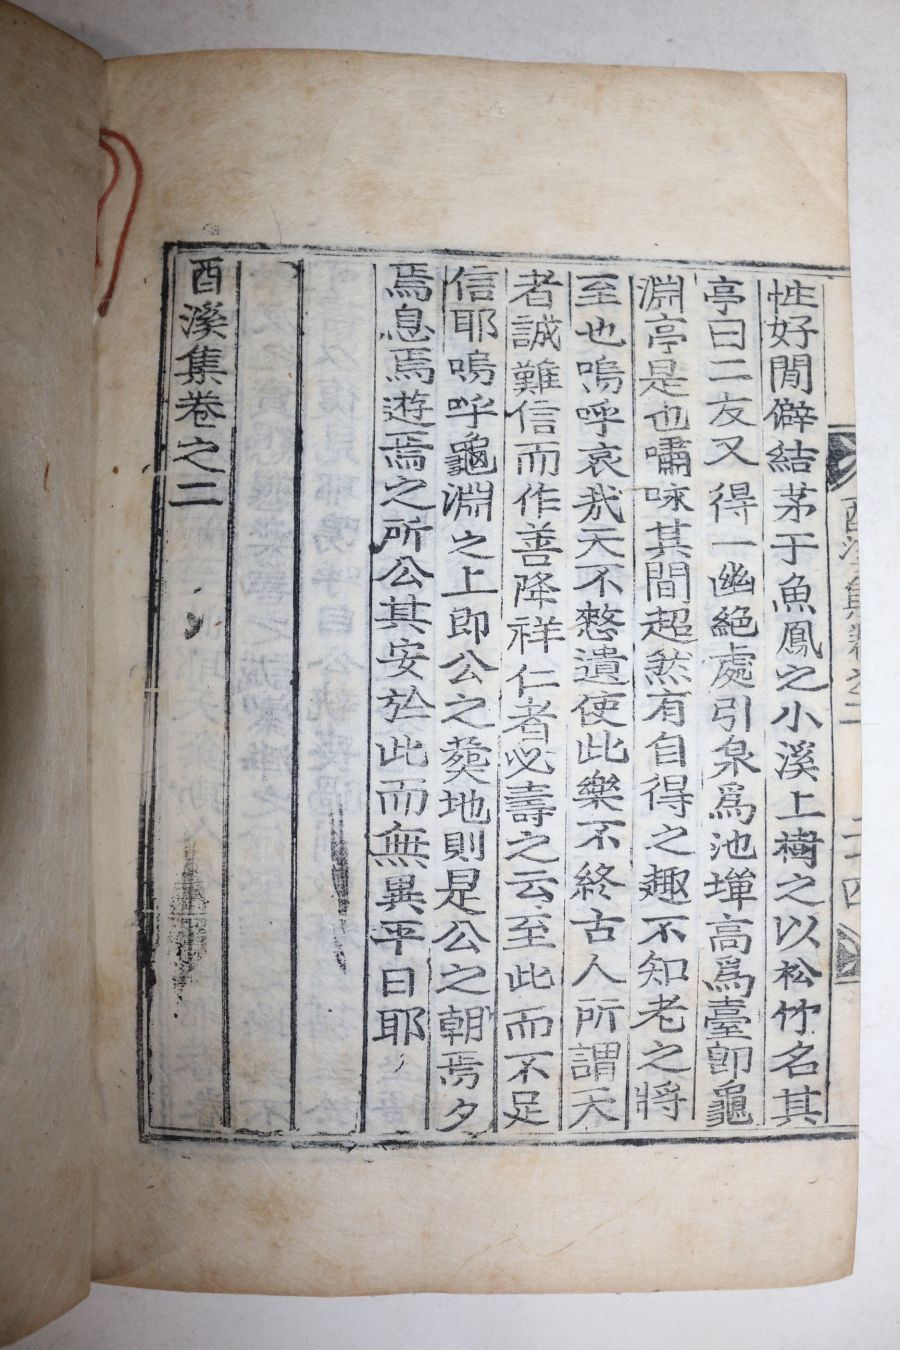 性好閒僻結茅于魚鳳之小溪上樹之以松竹名其
亭曰二友又得一幽絕處引泉爲池墠高爲臺卽龜
淵亭是也嘯咏其間超然有自得之趣不知老之將
至也嗚呼哀哉天不憗遺使此樂不終古人所謂天
者誠難信而作善降祥仁者必壽之云至此而不足
信耶嗚呼龜淵之上即公之葬地則是公之朝焉夕
焉息焉遊焉之所公其安於此而無異平日耶
酉溪集卷之二
酉溪集卷之二
二十四